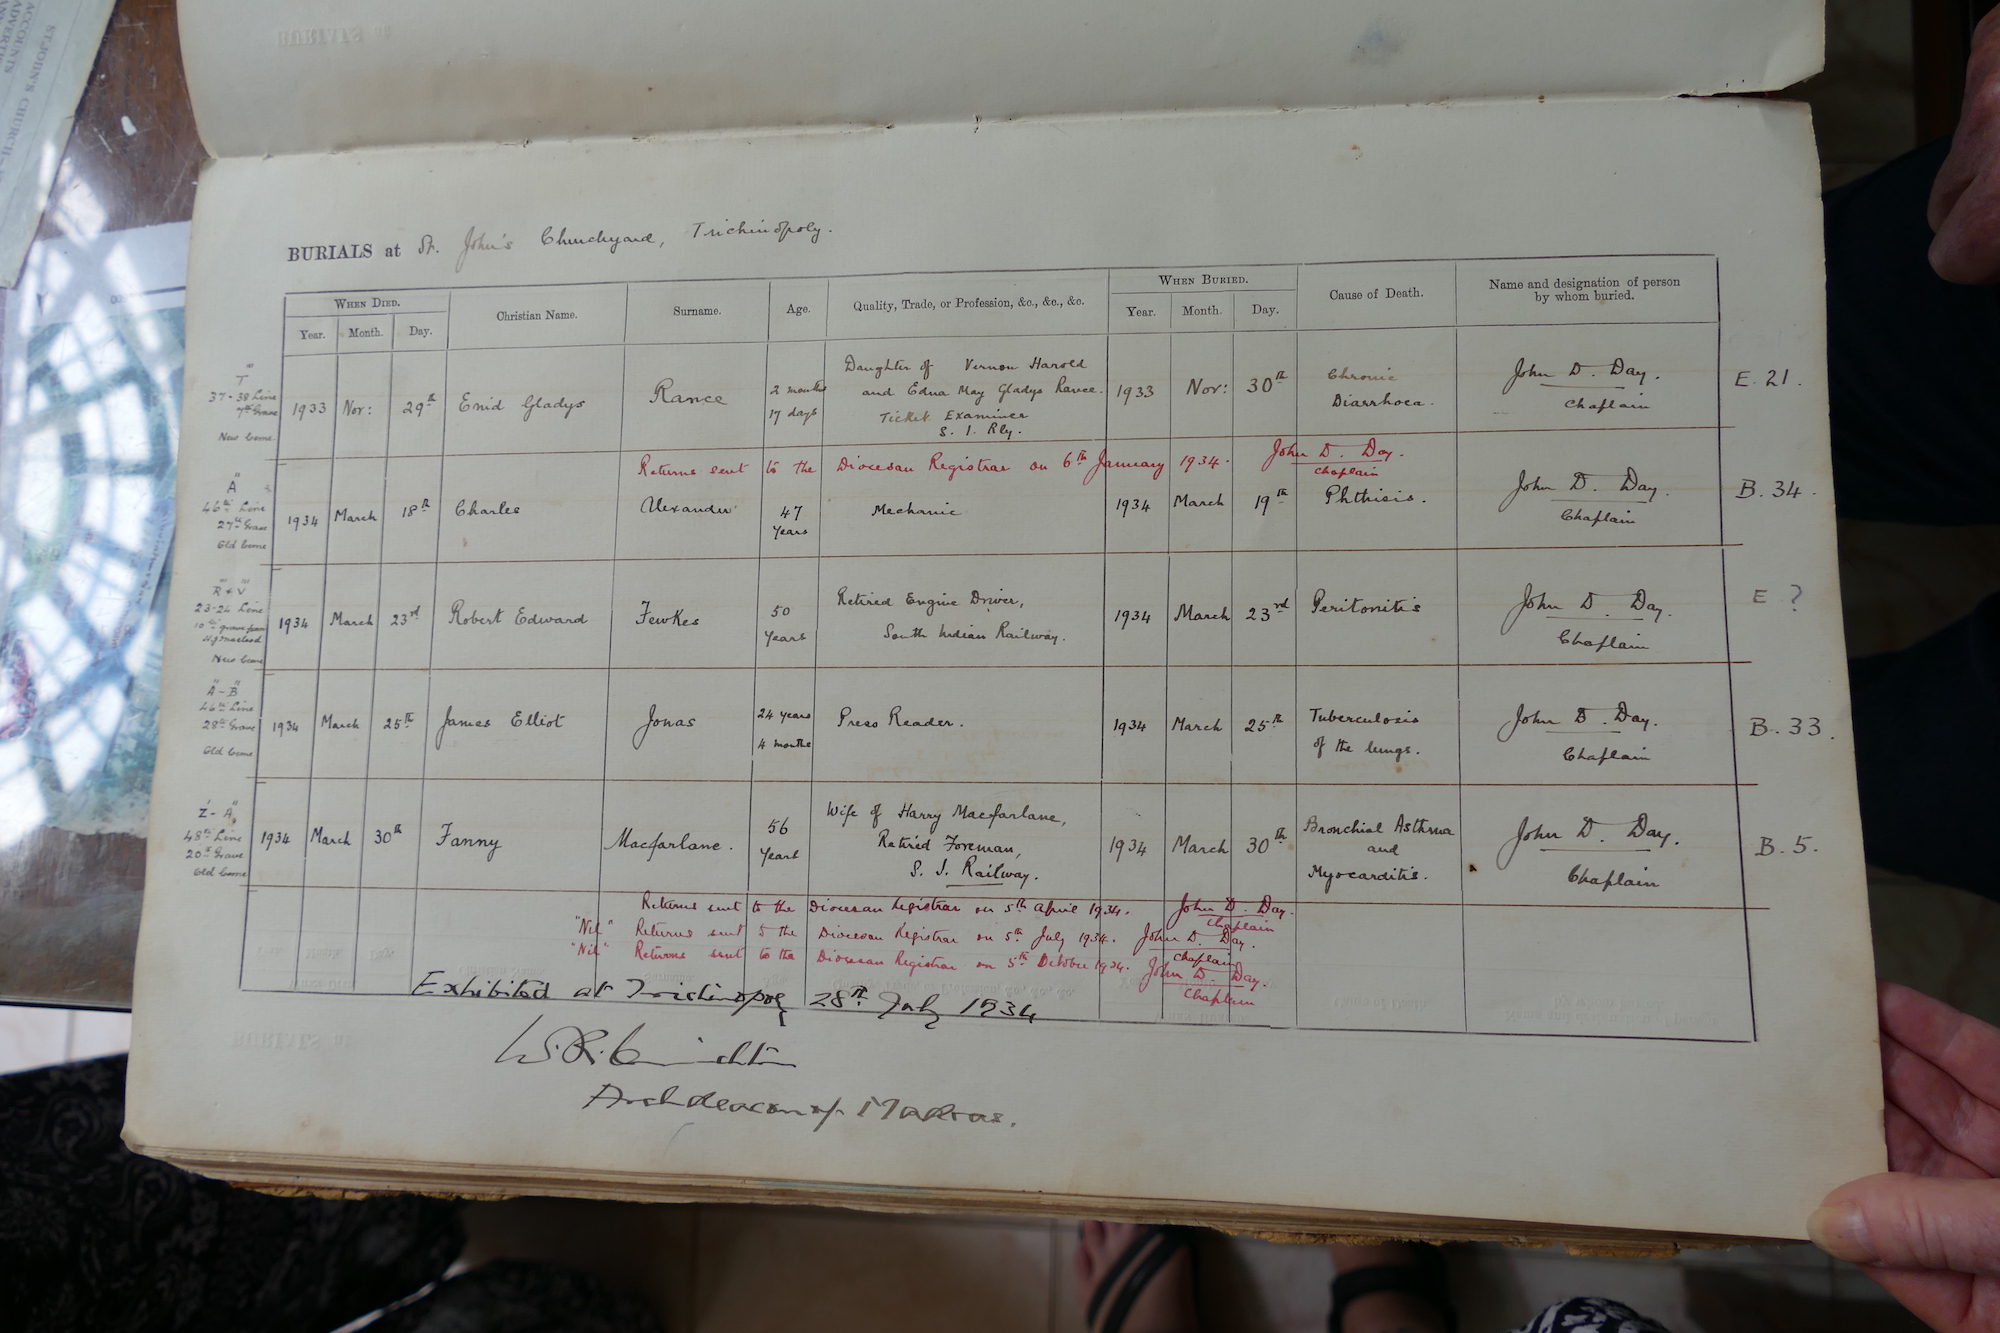 ST. JOHN'S CHURCH
ACCOUNTS
BURIALS at St. John's Churchyard, Trichinopoly.
When Died. Christian Name. Surname. Age. Quality, Trade, or Profession, &c., &c., &c. When Buried. Cause of Death. Name and designation of person by whom buried.
Year. Month. Day. Year. Month. Day.
"T"
37-38 Line
7th Grave
New Ceme.
1933 Nov: 29th Enid Gladys Rance 2 months 17 days Daughter of Vernon Harold and Edna May Gladys Rance. Ticket Examiner S. I. Rly. 1933 Nov: 30th Chronic Diarrhoea. John D. Day. Chaplain E. 21.
Returns sent to the Diocesan Registrar on 6th January 1934. John D. Day. Chaplain
"A"
46th Line
27th Grave
Old Ceme
1934 March 18th Charles Alexander 47 Years Mechanic 1934 March 19th Phthisis. John D. Day. Chaplain B. 34.
"R & V"
23-24 Line
10th grave from
New Ceme
1934 March 23rd Robert Edward Fewkes 50 Years Retired Engine Driver, South Indian Railway. 1934 March 23rd Peritonitis John D. Day. Chaplain E ?
"A-B"
46th Line
28th Grave
Old Ceme
1934 March 25th James Elliot Jonas 24 years 4 months Press Reader. 1934 March 25th Tuberculosis of the lungs. John D. Day. Chaplain B. 33.
Z-A
48th Line
20th Grave
Old Ceme
1934 March 30th Fanny Macfarlane. 56 Years Wife of Harry Macfarlane, Retired Foreman, S. I. Railway. 1934 March 30th Bronchial Asthma and Myocarditis. John D. Day. Chaplain B. 5.
Returns sent to the Diocesan Registrar on 5th April 1934. John D. Day. Chaplain
"Nil" Returns sent to the Diocesan Registrar on 5th July 1934. John D. Day. Chaplain
"Nil" Returns sent to the Diocesan Registrar on 5th October 1934. John D. Day. Chaplain
Exhibited at Trichinopoly 28th July 1934
Archdeacon of Madras.